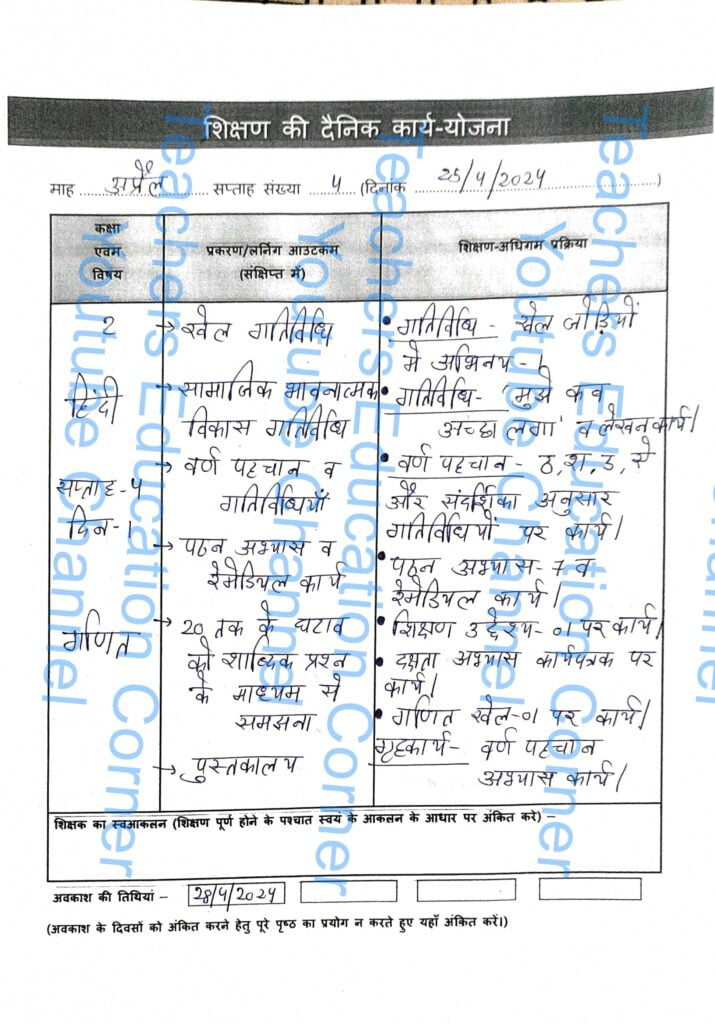 शिक्षण की दैनिक कार्य-योजना
माह अप्रैल सप्ताह संख्या 4 (दिनाक 25/4/2024)
कक्षा
एवम
विषय
प्रकरण/लर्निंग आउटकम
(संक्षिप्त में)
शिक्षण-अधिगम प्रक्रिया
2
हिंदी
सप्ताह-4
दिन-1
गणित
→ खेल गतिविधि
→ सामाजिक भावनात्मक
विकास गतिविधि
→ वर्ण पहचान व
गतिविधियाँ
→ पठन अभ्यास व
रेमेडियल कार्य
→ 20 तक के घटाव
को शाब्दिक प्रश्न
के माध्यम से
समझना
→ पुस्तकालय
• गतिविधि - खेल जोड़ियों
में अभिनय।
• गतिविधि- 'मुझे कब
अच्छा लगा' व लेखन कार्य।
• वर्ण पहचान - ठ, श, उ, से
और संदर्शिका अनुसार
गतिविधियों पर कार्य।
• पठन अभ्यास-7 व
रेमेडियल कार्य।
• शिक्षण उद्देश्य-01 पर कार्य।
• दक्षता अभ्यास कार्यपत्रक पर
कार्य।
• गणित खेल-01 पर कार्य।
गृहकार्य- वर्ण पहचान
अभ्यास कार्य।
शिक्षक का स्वआकलन (शिक्षण पूर्ण होने के पश्चात स्वयं के आकलन के आधार पर अंकित करे) –
अवकाश की तिथियां – 28/4/2024
(अवकाश के दिवसों को अंकित करने हेतु पूरे पृष्ठ का प्रयोग न करते हुए यहाँ अंकित करें।)
Teachers Education Corner
Youtube Channel
Teachers Education Corner
Youtube Channel
Teachers Education Corner
Youtube Channel